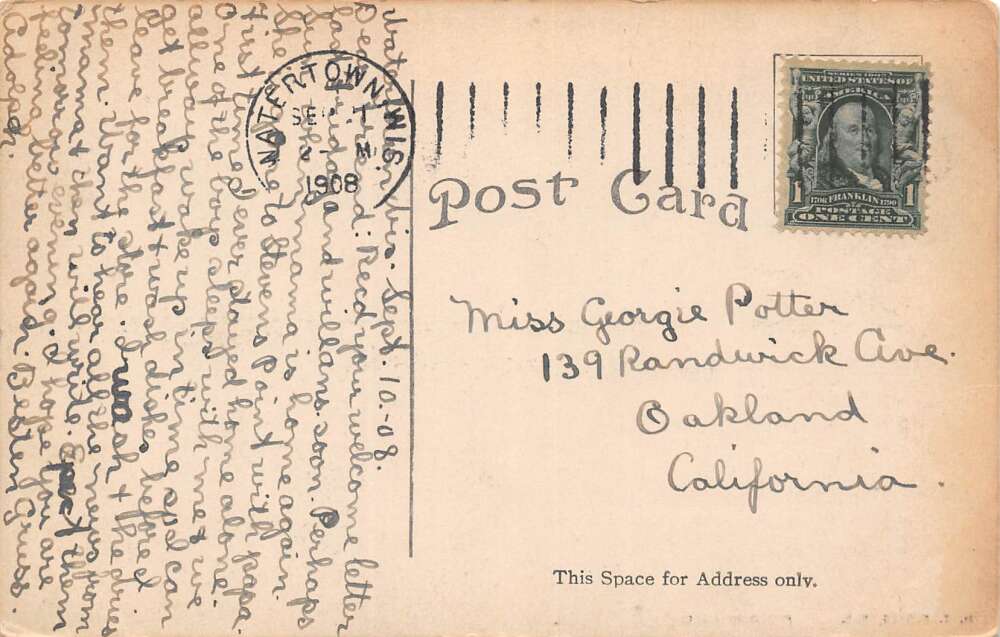 Watertown Wis. Sept. 10-08.
Dear Friend: Recd your welcome letter
and will ans. soon. Perhaps
mama is home again.
She gone to Stevens Point with papa.
First time I ever stayed home alone.
One of the boys sleeps with me & we
allways wake up in time so I can
get breakfast & wash dishes before I
leave for the store. I wash & the dries
them. I want to hear all the news from
then will write. Expect them
tomorrow evening. I hope you are
feeling better again. Besten Gruss.
WATERTOWN, WIS.
SEP
M
1908
Post Card
SERIES 1902
UNITED STATES OF
AMERICA
1 1706 FRANKLIN 1790 1
POSTAGE
ONE CENT
Miss Georgie Potter
139 Randwick Ave.
Oakland
California.
This Space for Address only.